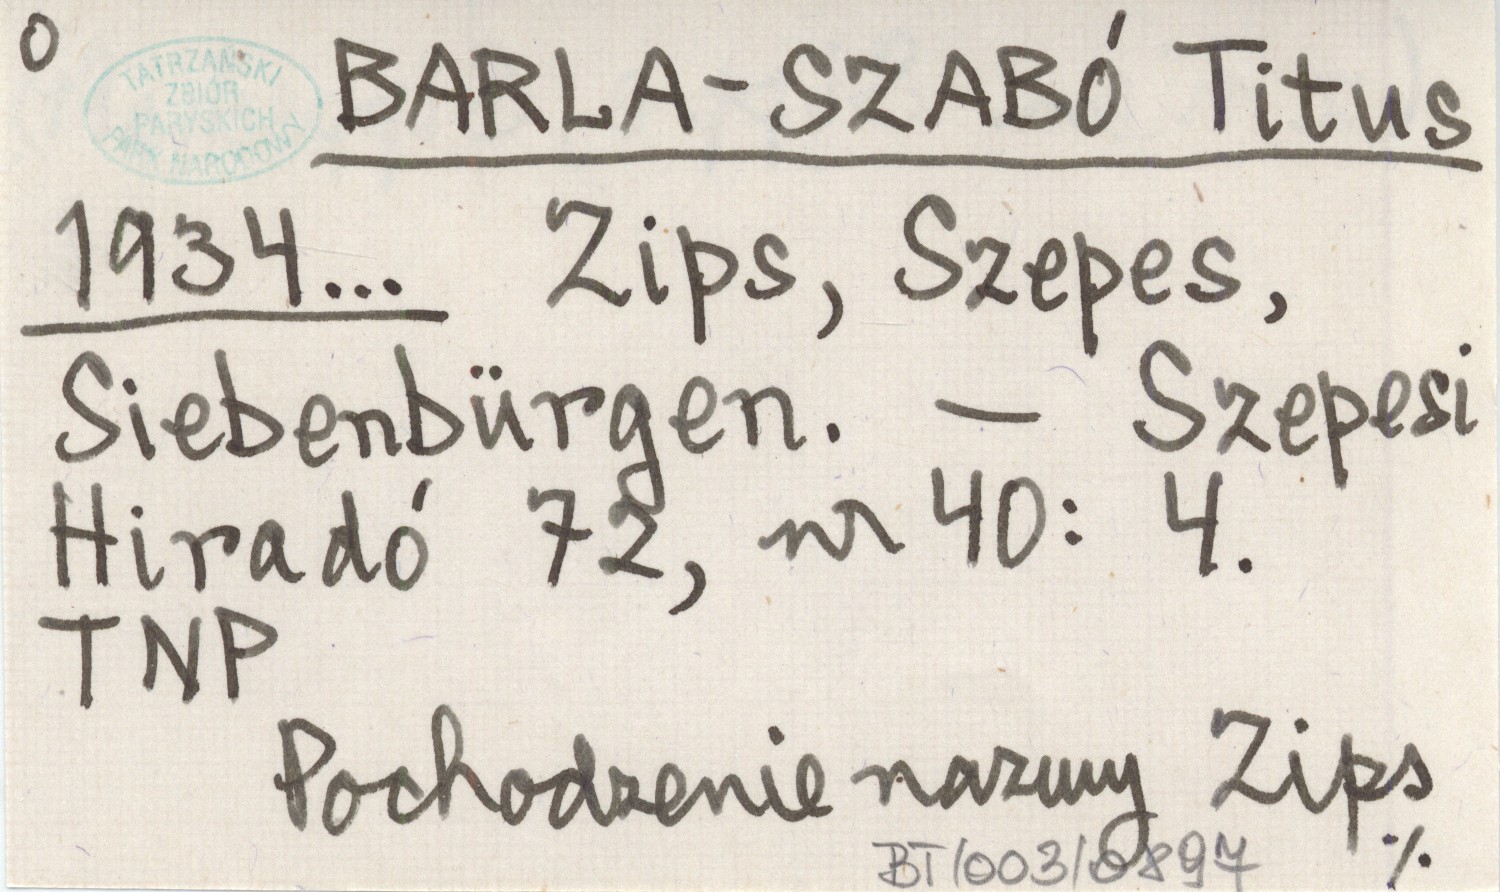 O
TATRZAŃSKI
ZBIÓR
PARYSKICH
PARK NARODOWY
BARLA-SZABÓ Titus
1934... Zips, Szepes,
Siebenbürgen. — Szepesi
Hiradó 72, nr 40: 4.
TNP
Pochodzenie nazwy Zips
./.
BT/003/0897